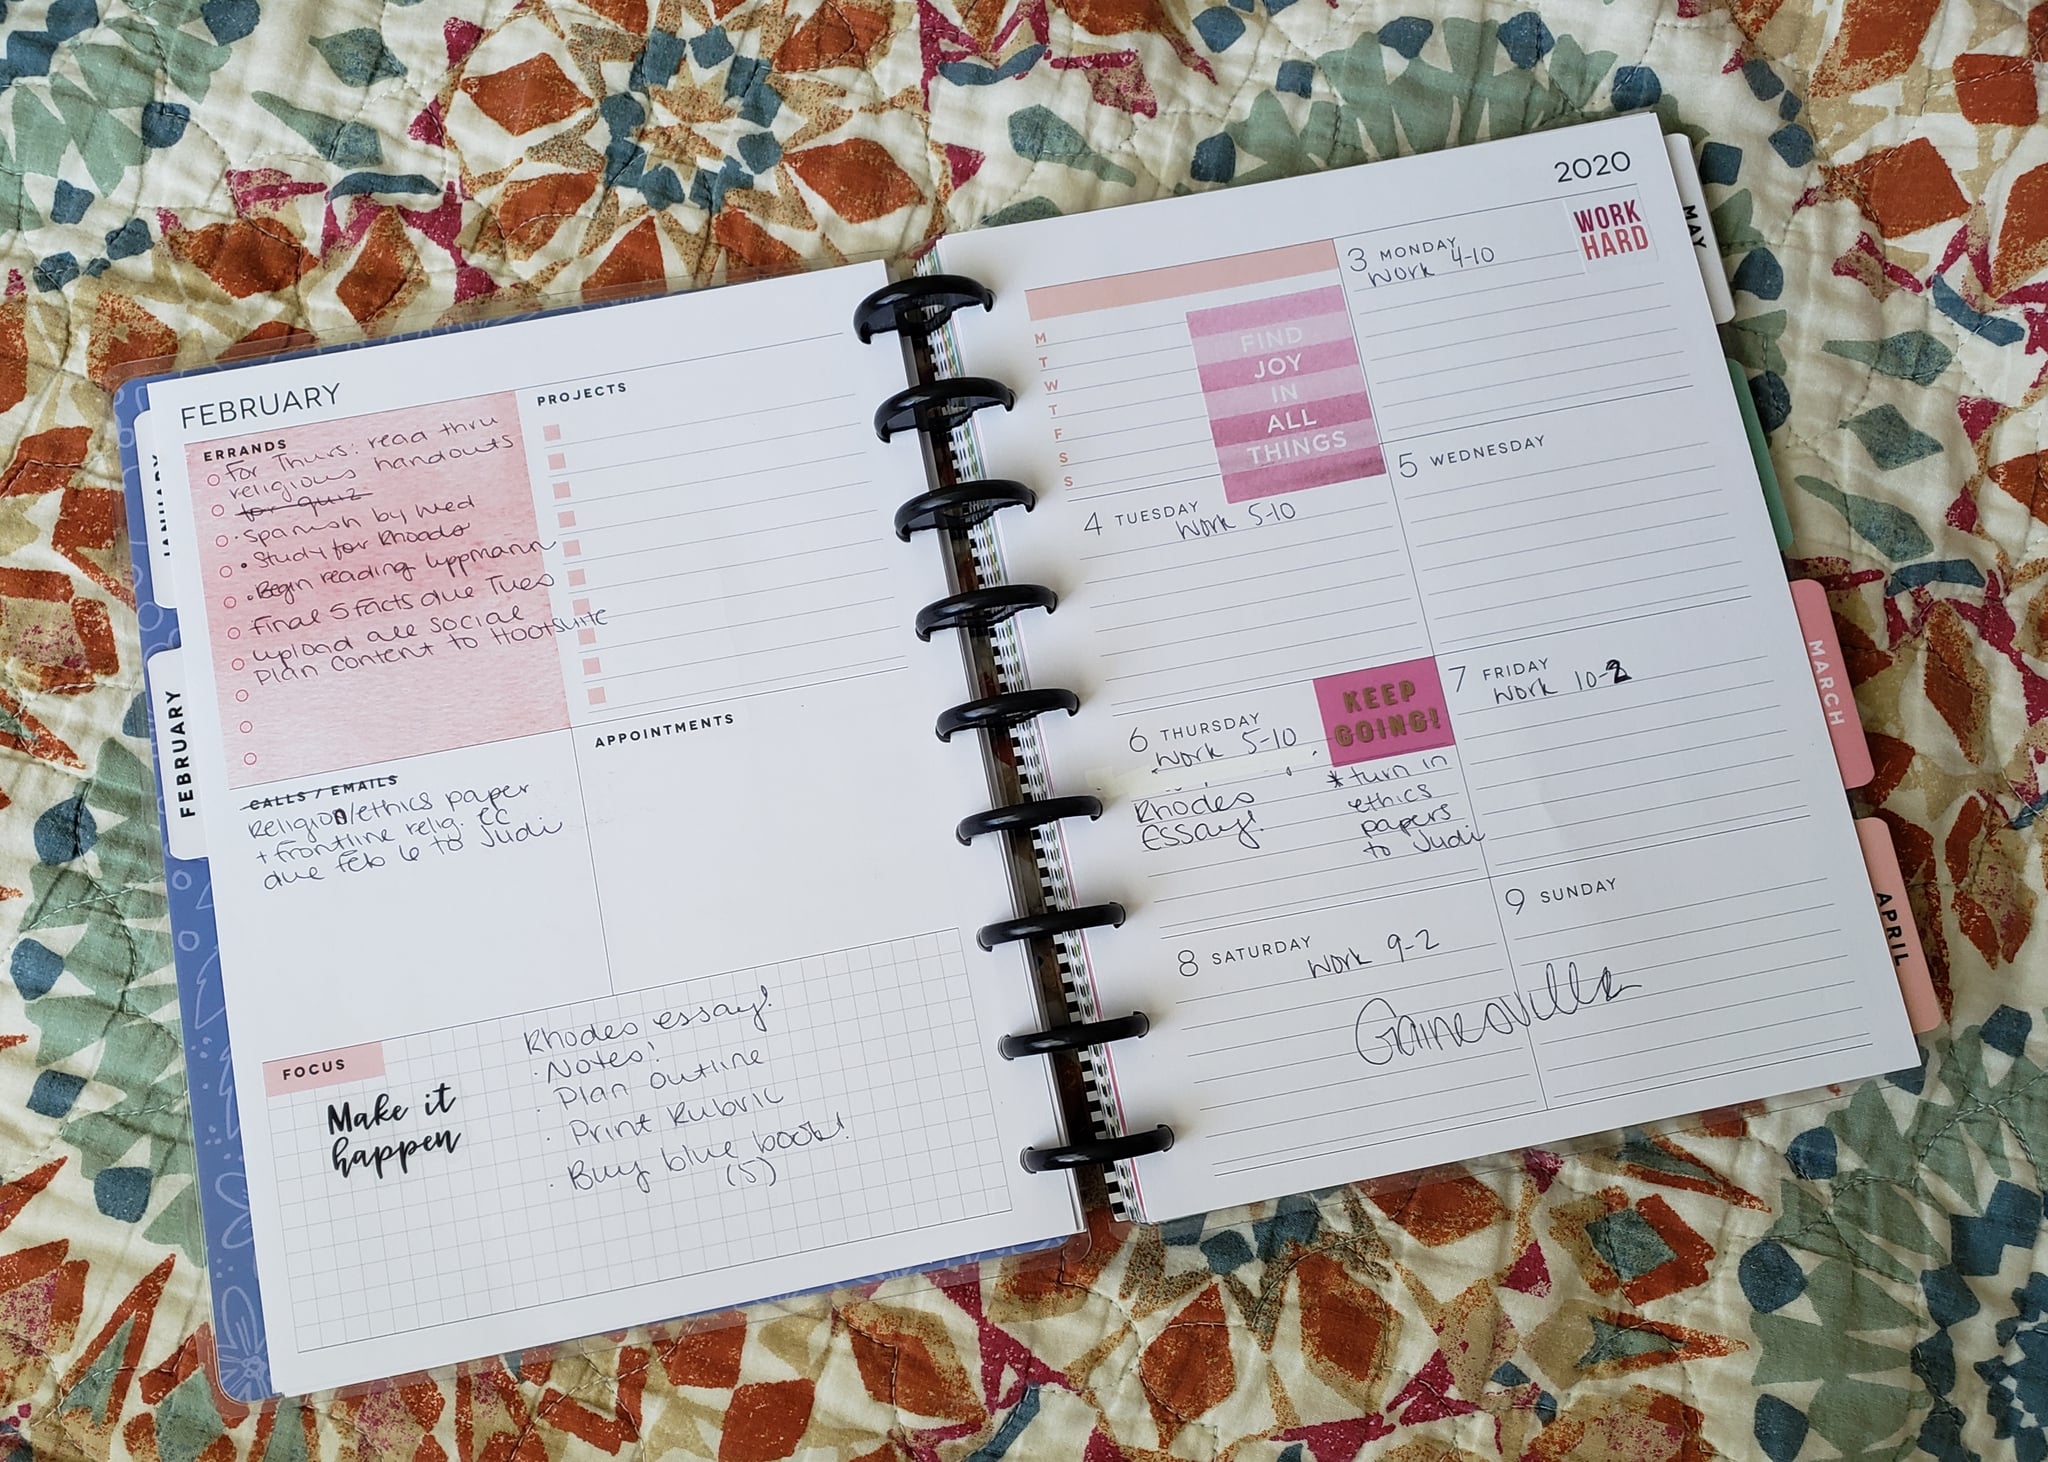 FEBRUARY
ERRANDS
For Thurs: read thru
religious handouts
for quiz
· Spanish by Wed
· Study for Rhoads
· Begin reading Lippmann
Final 5 Facts due Tues
upload all social
Plan content to Hootsuite
CALLS / EMAILS
Religion/ethics paper
+ frontline relig. EC
due Feb 6 to Judi
PROJECTS
APPOINTMENTS
FOCUS
Make it
happen
Rhodes essay!
· Notes!
· Plan outline
· Print Rubric
· Buy blue book!
(5)
JANUARY
FEBRUARY
2020
M
T
W
T
F
S
S
FIND
JOY
IN
ALL
THINGS
3 MONDAY
Work 4-10
WORK
HARD
4 TUESDAY
Work 5-10
5 WEDNESDAY
6 THURSDAY
Work 5-10
KEEP
GOING!
Rhodes
Essay!
* turn in
ethics
papers
to Judi
7 FRIDAY
Work 10-2
8 SATURDAY
Work 9-2
9 SUNDAY
Gainesville
MAY
MARCH
APRIL